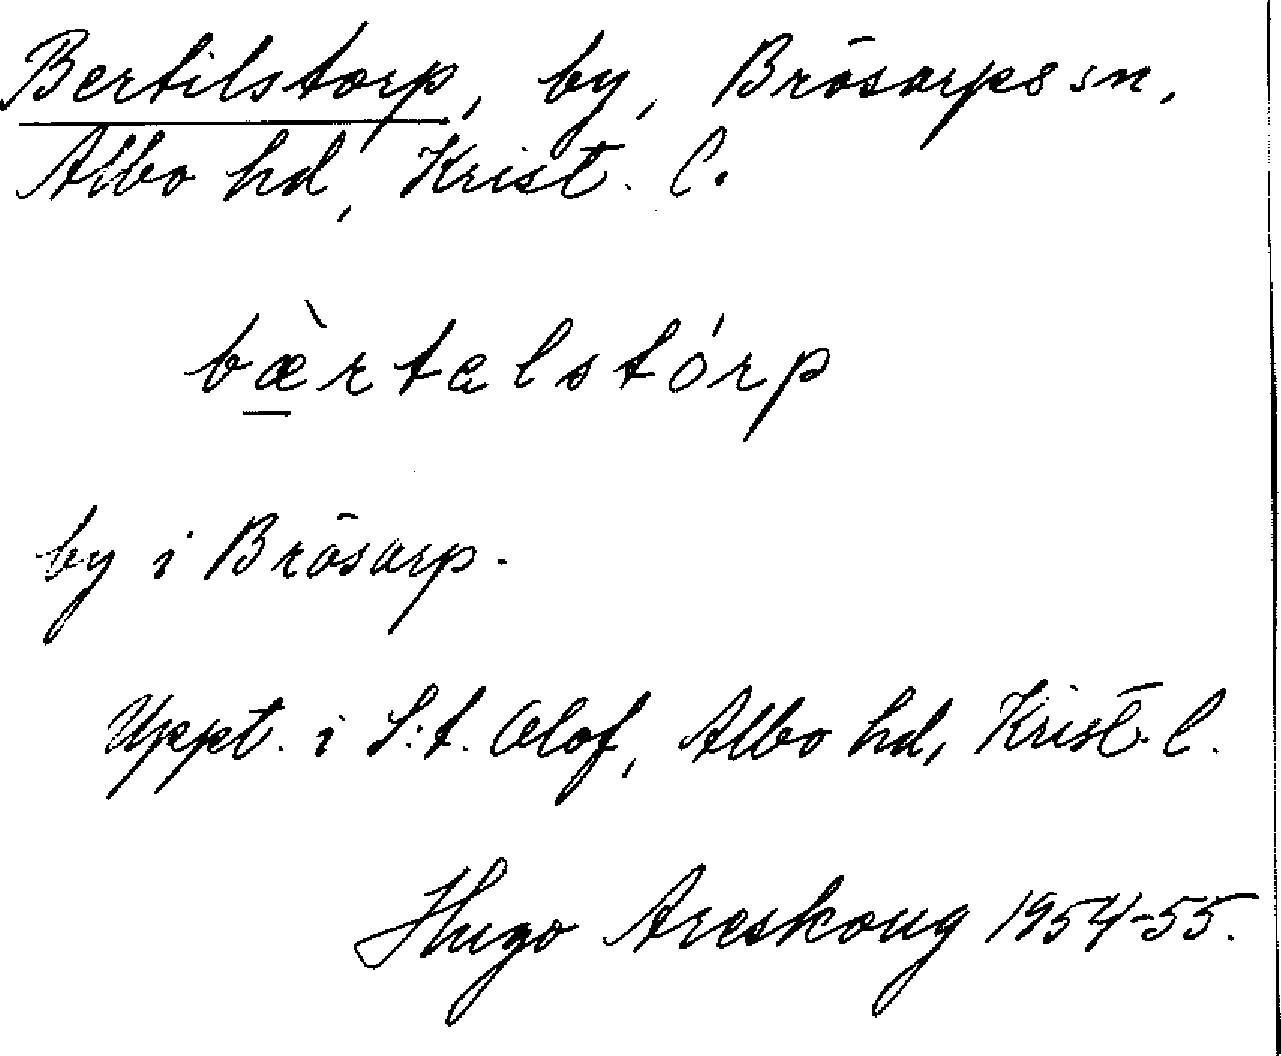 Bertilstorp, by, Brösarps sn,
Albo hd, Krist. l.
bæ̀rtalstórp
by i Brösarp.
Uppt. i S:t. Olof, Albo hd, Krist. l.
Hugo Areskoug 1954-55.